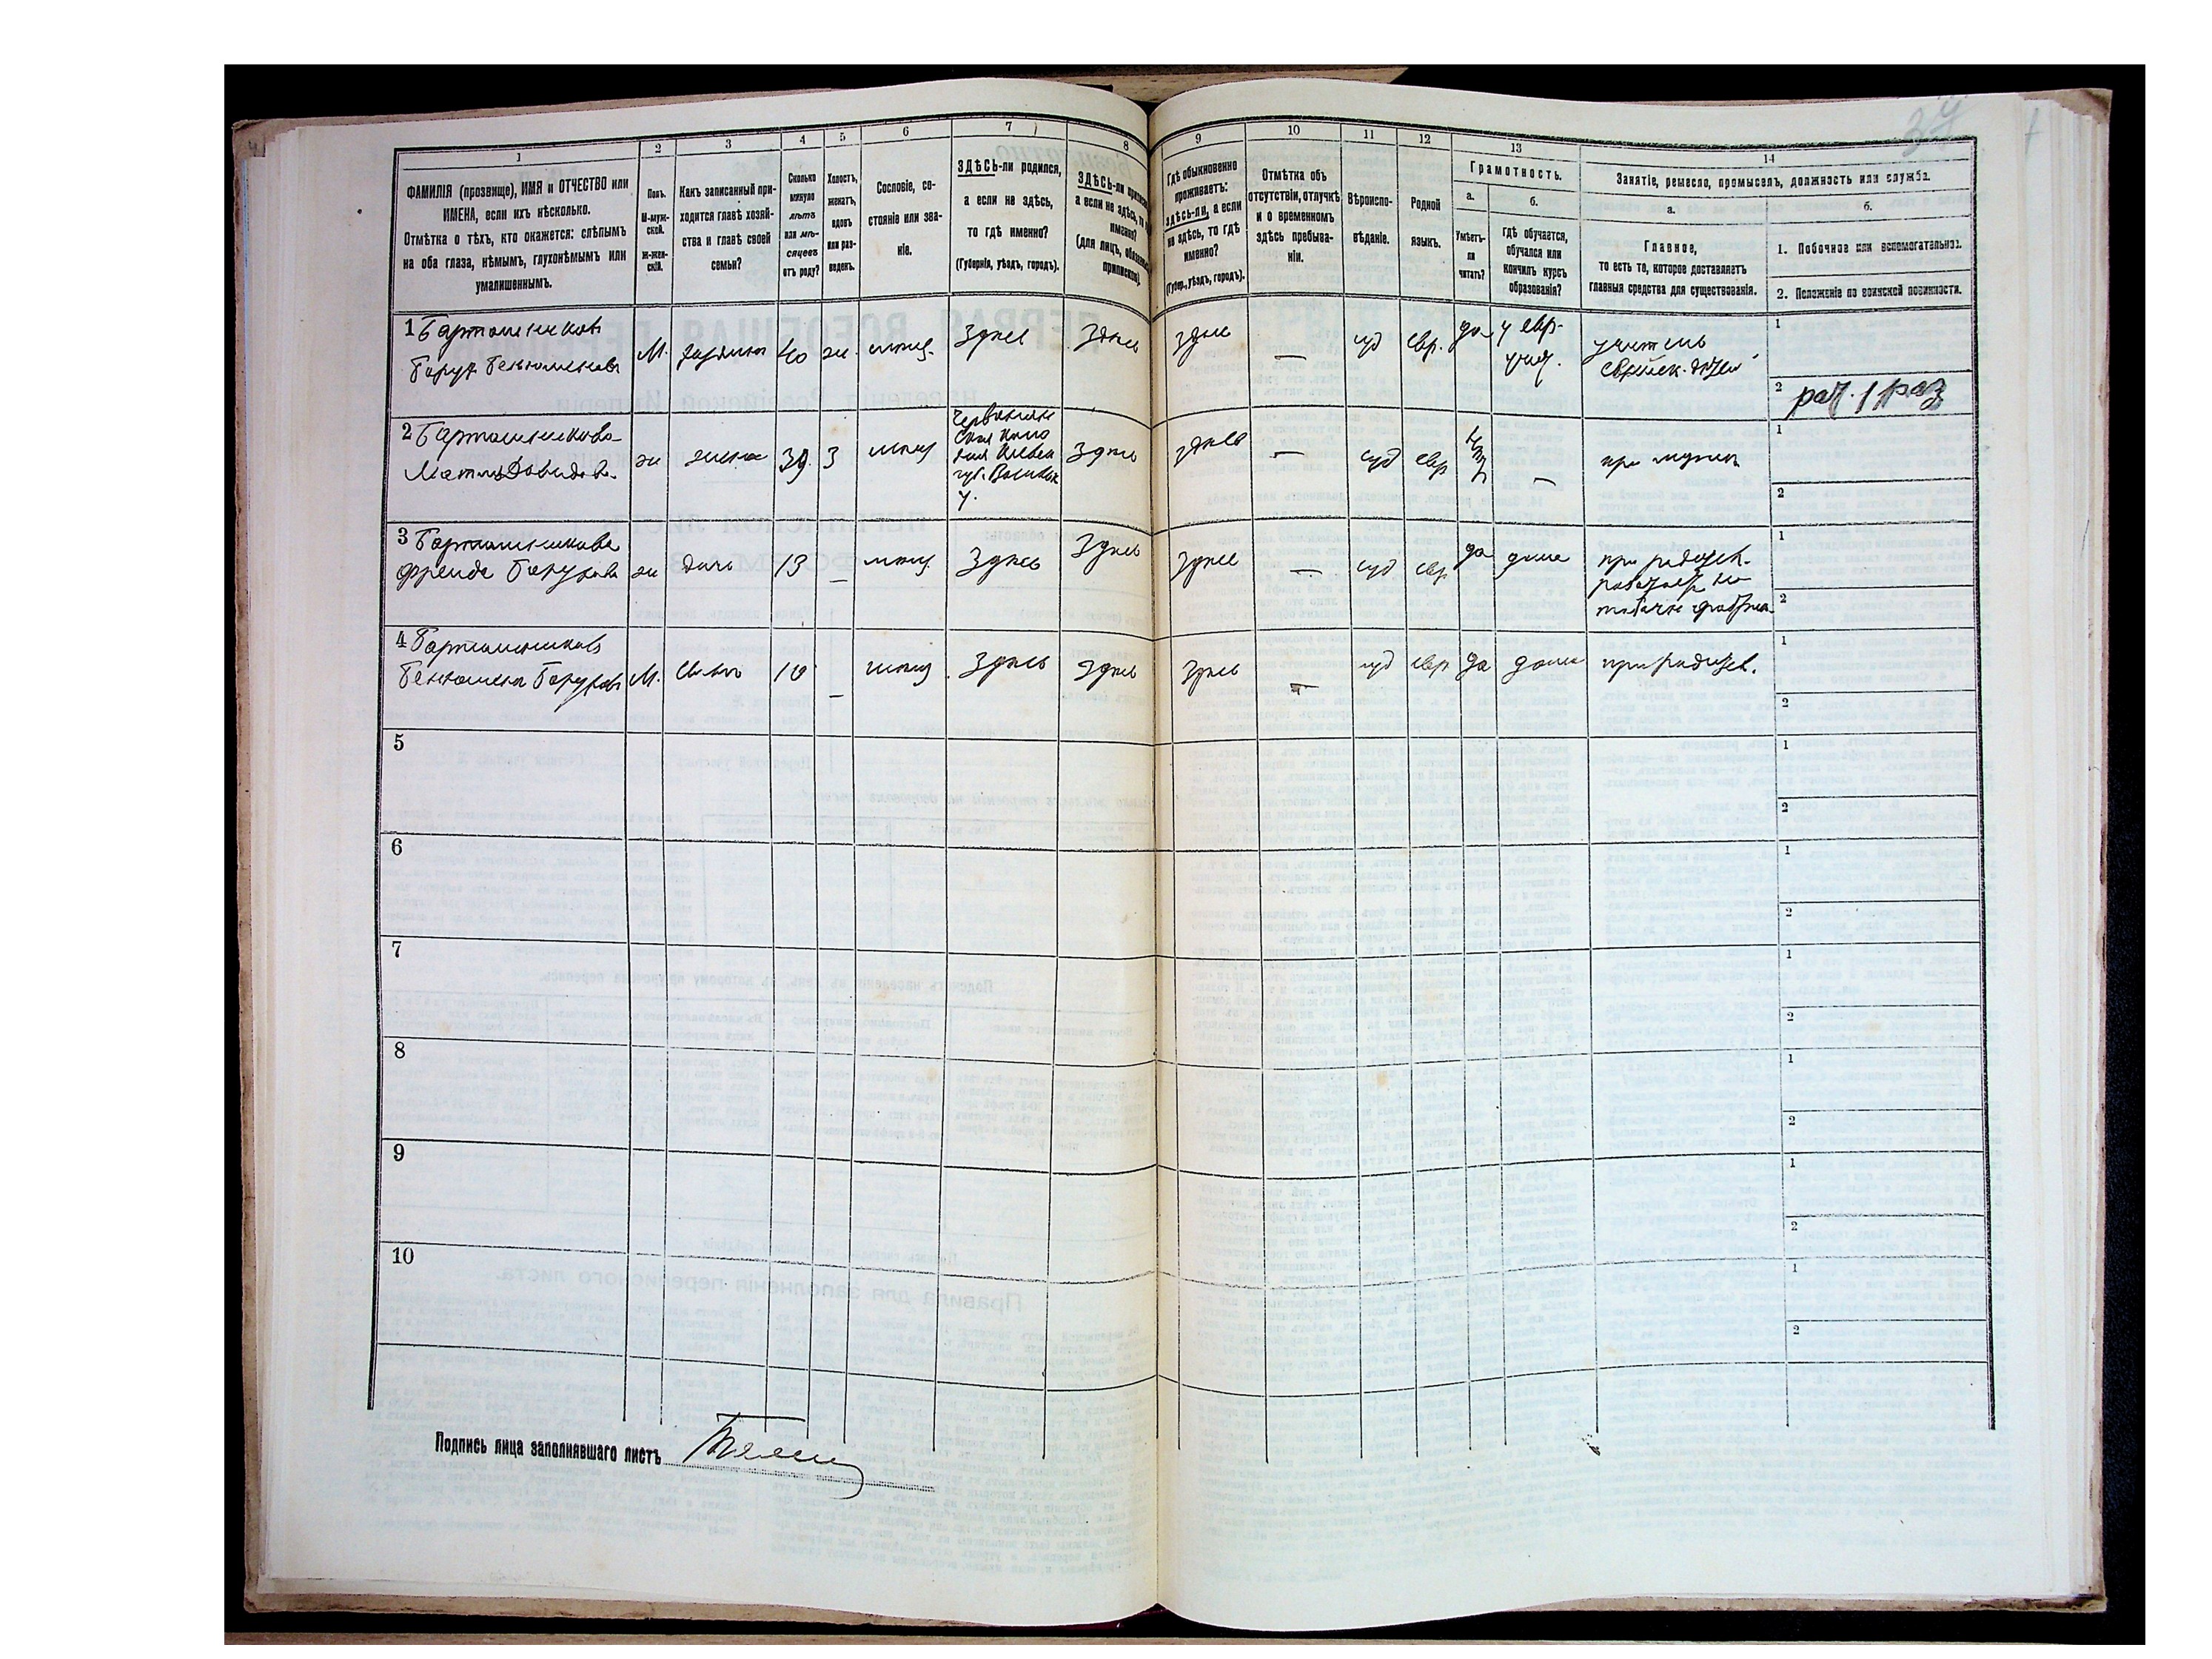 34
1 2 3 4 5 6 7 8 9 10 11 12 13 14
ФАМИЛІЯ (прозвище), ИМЯ и ОТЧЕСТВО или
ИМЕНА, если ихъ нѣсколько.
Отмѣтка о тѣхъ, кто окажется: слѣпымъ
на оба глаза, нѣмымъ, глухонѣмымъ или
умалишеннымъ.
Полъ.
М-муж-
ской.
Ж-жен-
скій.
Какъ записанный при-
ходится главѣ хозяй-
ства и главѣ своей
семьи?
Сколько
минуло
лѣтъ
или мѣ-
сяцевъ
отъ роду?
Холостъ,
женатъ,
вдовъ
или раз-
веденъ.
Сословіе, со-
стояніе или зва-
ніе.
ЗДѢСЬ-ли родился,
а если не здѣсь,
то гдѣ именно?
(Губернія, уѣздъ, городъ).
ЗДѢСЬ-ли
а если не здѣсь,
именно?
(для лицъ,
Гдѣ обыкновенно
проживаетъ:
здѣсь-ли, а если
не здѣсь, то гдѣ
именно?
(Губер., уѣздъ, городъ).
Отмѣтка объ
отсутствіи, отлучкѣ
и о временномъ
здѣсь пребыва-
ніи.
Вѣроиспо-
вѣданіе.
Родной
языкъ.
Грамотность.
а.
Умѣетъ-
ли
читать?
б.
Гдѣ обучается,
обучался или
кончилъ курсъ
образованія?
Занятіе, ремесло, промыселъ, должность или служба.
а.
Главное,
то есть то, которое доставляетъ
главныя средства для существованія.
б.
1. Побочное или вспомогательное.
2. Положеніе по воинской повинности.
1 Бортошниковъ
Борух Беньоменовъ
М. хозяинъ 40 ж. мѣщ. Здѣсь Здѣсь здѣсь — іуд евр. да у евр.
учил.
учитель
еврейск. дѣтей
1
2
2 Бортошникова
Матля Довидова
ж жена 39 З мѣщ
губ.
у.
Здѣсь здѣсь — іуд евр — при мужѣ
1
2
3 Бортошникова
Фрейда Борухова ж дочь 13 — мѣщ. Здѣсь Здѣсь Здѣсь — іуд евр да дома при родител.
работаетъ на
табачн фабрикѣ
1
2
4 Бортошниковъ
Беньомен Боруховъ М. сынъ 10 — мѣщ Здѣсь Здѣсь Здѣсь — іуд евр да дома при родител.
1
2
5
1
2
6
1
2
7
1
2
8
1
2
9
1
2
10
1
2
Подпись лица заполнявшаго листъ